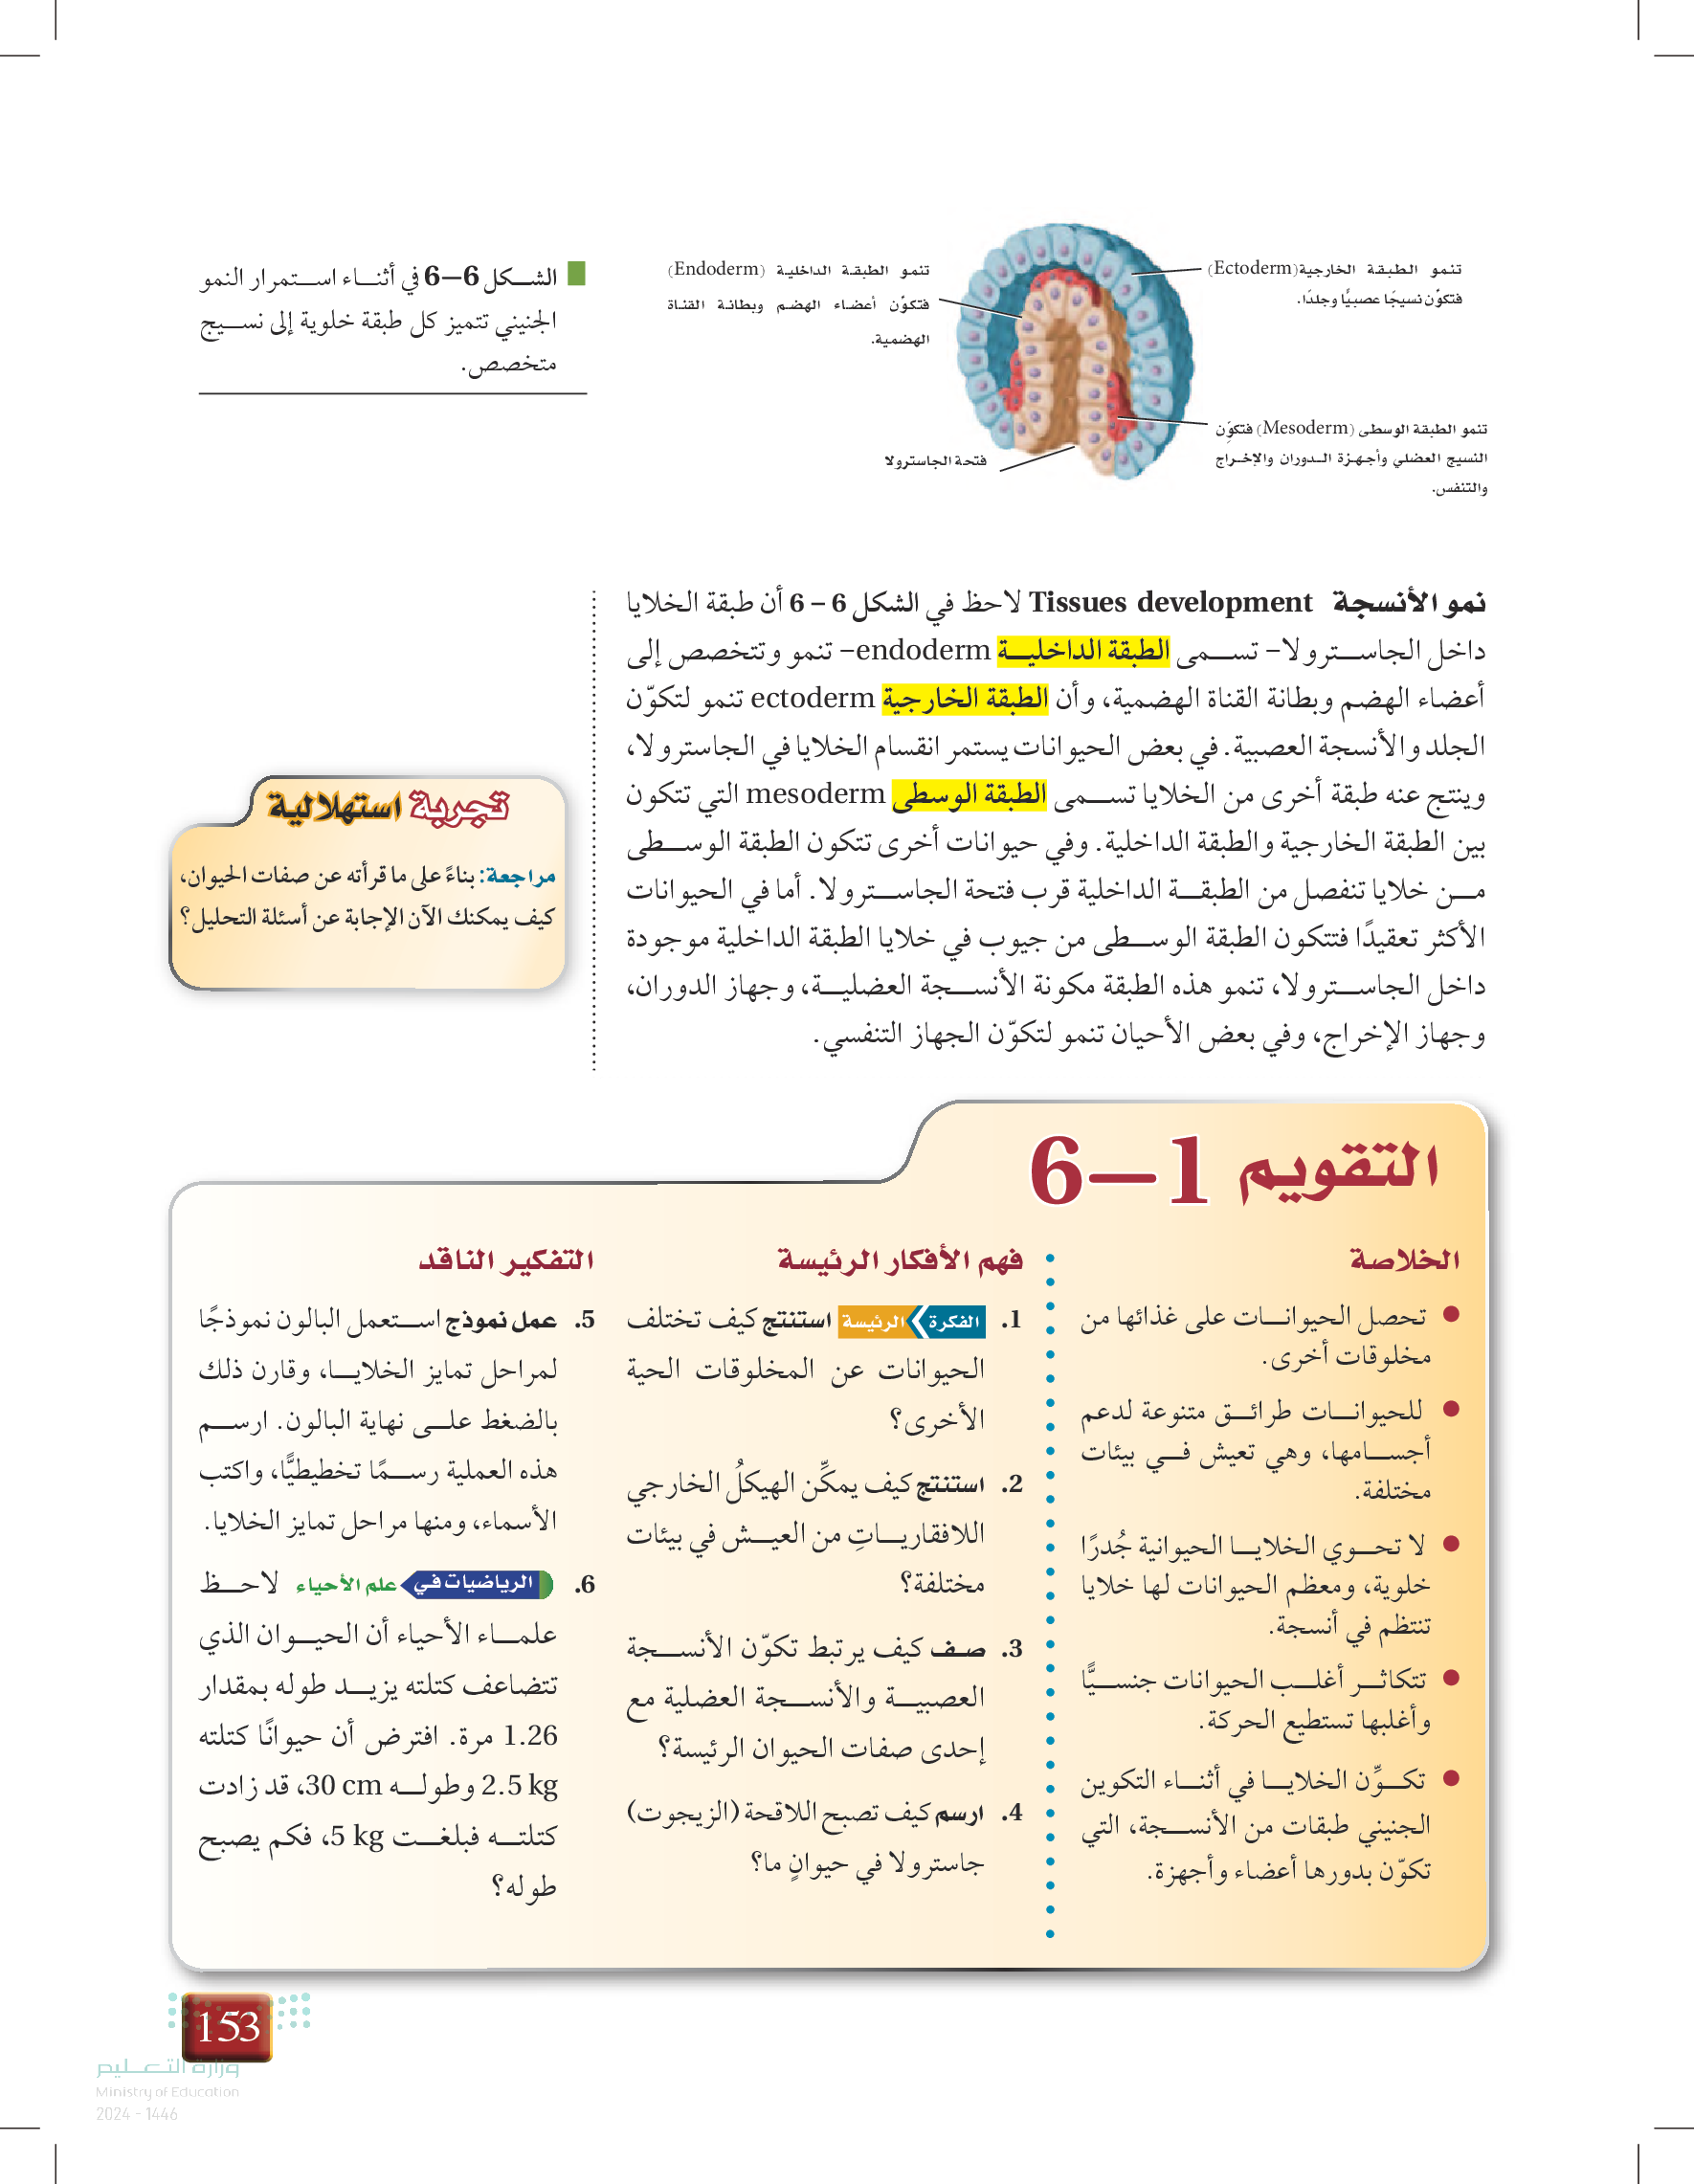 تنمو الطبقة الخارجية (Ectoderm)
فتكوّن نسيجًا عصبيًّا وجلدًا.
تنمو الطبقة الوسطى (Mesoderm) فتكوّن
النسيج العضلي وأجهزة الدوران والإخراج
والتنفس.
تنمو الطبقة الداخلية (Endoderm)
فتكوّن أعضاء الهضم وبطانة القناة
الهضمية.
فتحة الجاسترولا
الشكل 6–6 في أثناء استمرار النمو
الجنيني تتميز كل طبقة خلوية إلى نسيج
متخصص.
نمو الأنسجة Tissues development لاحظ في الشكل 6 – 6 أن طبقة الخلايا
داخل الجاسترولا– تسمى الطبقة الداخلية endoderm– تنمو وتتخصص إلى
أعضاء الهضم وبطانة القناة الهضمية، وأن الطبقة الخارجية ectoderm تنمو لتكوّن
الجلد والأنسجة العصبية. في بعض الحيوانات يستمر انقسام الخلايا في الجاسترولا،
وينتج عنه طبقة أخرى من الخلايا تسمى الطبقة الوسطى mesoderm التي تتكون
بين الطبقة الخارجية والطبقة الداخلية. وفي حيوانات أخرى تتكون الطبقة الوسطى
من خلايا تنفصل من الطبقة الداخلية قرب فتحة الجاسترولا. أما في الحيوانات
الأكثر تعقيدًا فتتكون الطبقة الوسطى من جيوب في خلايا الطبقة الداخلية موجودة
داخل الجاسترولا، تنمو هذه الطبقة مكونة الأنسجة العضلية، وجهاز الدوران،
وجهاز الإخراج، وفي بعض الأحيان تنمو لتكوّن الجهاز التنفسي.
تجربة استهلالية
مراجعة: بناءً على ما قرأته عن صفات الحيوان،
كيف يمكنك الآن الإجابة عن أسئلة التحليل؟
التقويم 1–6
الخلاصة
• تحصل الحيوانات على غذائها من
مخلوقات أخرى.
• للحيوانات طرائق متنوعة لدعم
أجسامها، وهي تعيش في بيئات
مختلفة.
• لا تحوي الخلايا الحيوانية جُدرًا
خلوية، ومعظم الحيوانات لها خلايا
تنتظم في أنسجة.
• تتكاثر أغلب الحيوانات جنسيًّا
وأغلبها تستطيع الحركة.
• تكوِّن الخلايا في أثناء التكوين
الجنيني طبقات من الأنسجة، التي
تكوّن بدورها أعضاء وأجهزة.
فهم الأفكار الرئيسة
1. الفكرة الرئيسة استنتج كيف تختلف
الحيوانات عن المخلوقات الحية
الأخرى؟
2. استنتج كيف يمكِّن الهيكلُ الخارجي
اللافقارياتِ من العيش في بيئات
مختلفة؟
3. صف كيف يرتبط تكوّن الأنسجة
العصبية والأنسجة العضلية مع
إحدى صفات الحيوان الرئيسة؟
4. ارسم كيف تصبح اللاقحة (الزيجوت)
جاسترولا في حيوانٍ ما؟
التفكير الناقد
5. عمل نموذج استعمل البالون نموذجًا
لمراحل تمايز الخلايا، وقارن ذلك
بالضغط على نهاية البالون. ارسم
هذه العملية رسمًا تخطيطيًّا، واكتب
الأسماء، ومنها مراحل تمايز الخلايا.
6. الرياضيات في علم الأحياء لاحظ
علماء الأحياء أن الحيوان الذي
تتضاعف كتلته يزيد طوله بمقدار
1.26 مرة. افترض أن حيوانًا كتلته
2.5 kg وطوله 30 cm، قد زادت
كتلته فبلغت 5 kg، فكم يصبح
طوله؟
153
وزارة التعليم
Ministry of Education
2024 - 1446